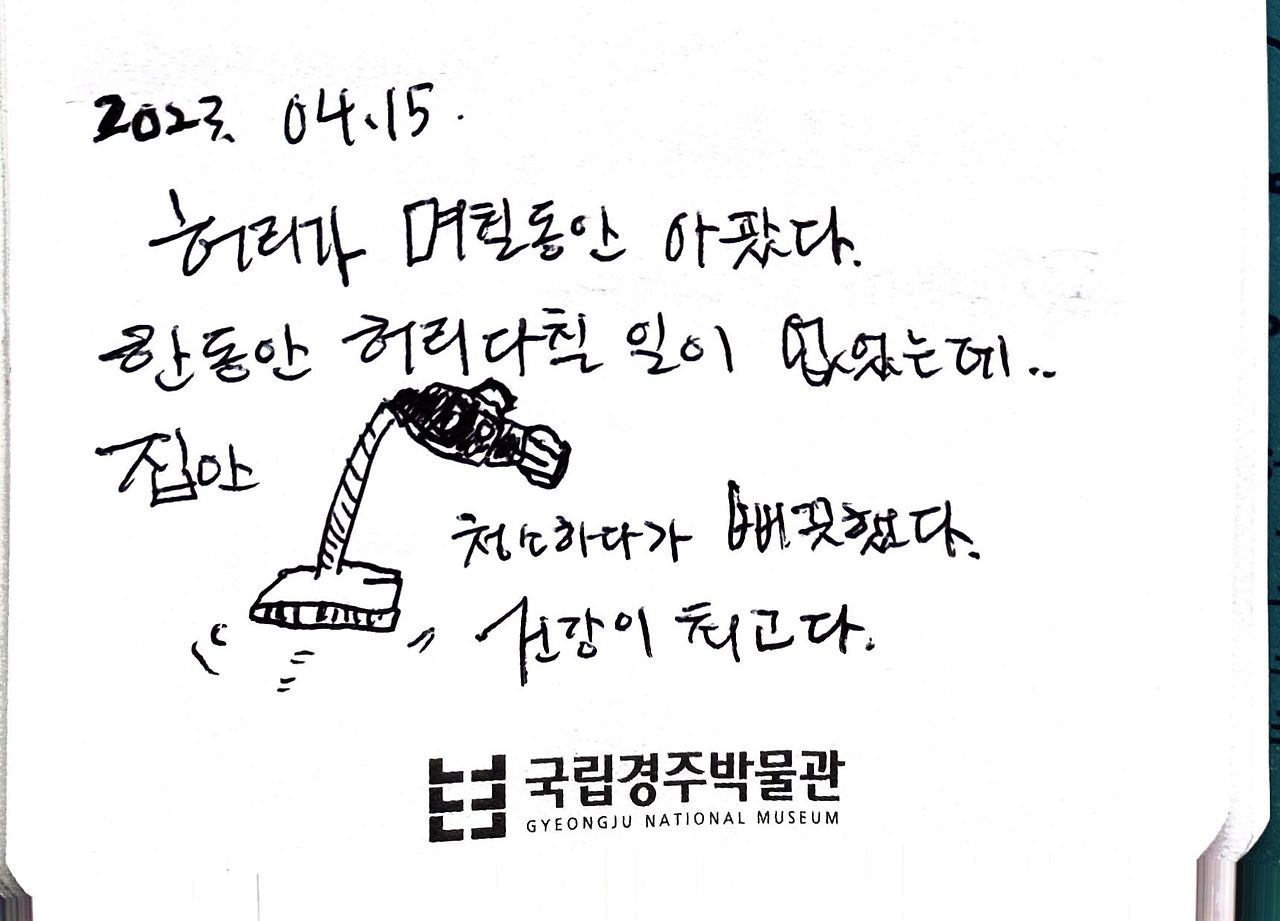 2023. 04.15.
허리가 며칠동안 아팠다.
한동안 허리다칠 일이 없었는데..
집안
청소하다가 삐끗했다.
건강이 최고다.
국립경주박물관
GYEONGJU NATIONAL MUSEUM